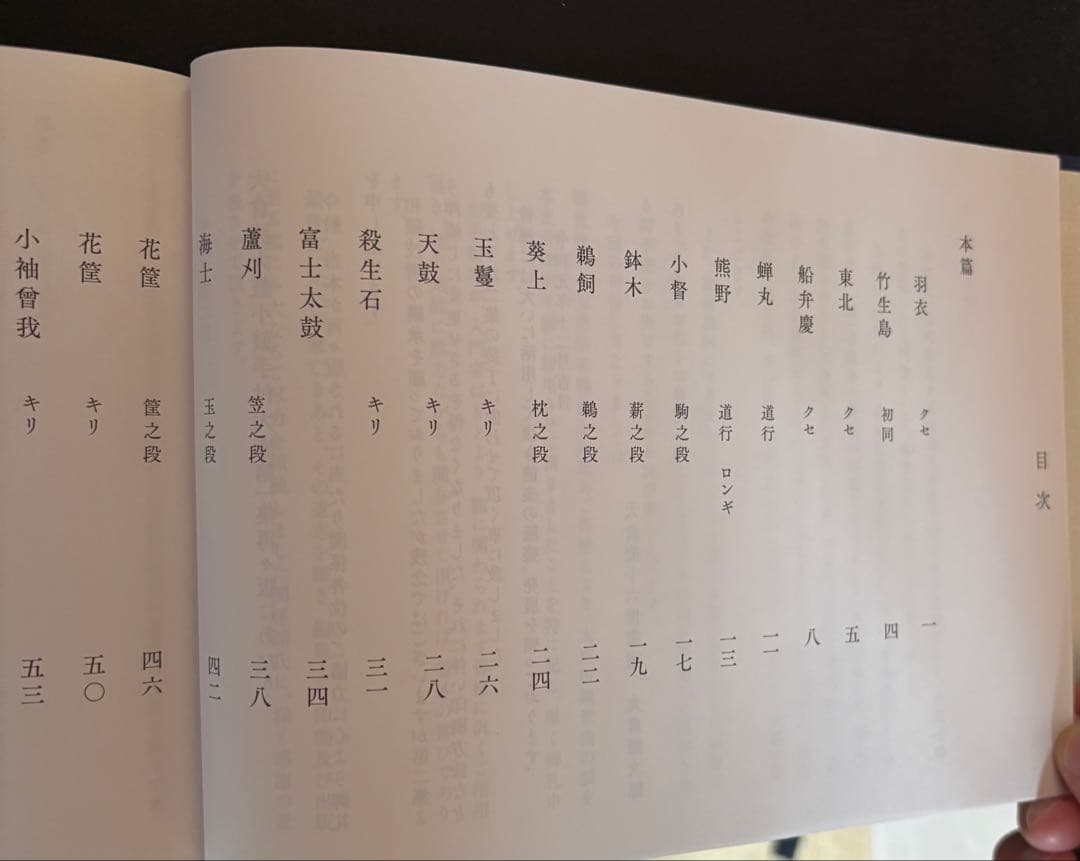 目次
本篇
羽衣 クセ 一
竹生島 初同 四
東北 クセ 五
船弁慶 クセ 八
蝉丸 道行 一一
熊野 道行 ロンギ 一三
小督 駒之段 一七
鉢木 薪之段 一九
鵜飼 鵜之段 二二
葵上 枕之段 二四
玉鬘 キリ 二六
天鼓 キリ 二八
殺生石 キリ 三一
富士太鼓 三四
蘆刈 笠之段 三八
海士 玉之段 四二
花筐 筐之段 四六
花筐 キリ 五〇
小袖曾我 キリ 五三